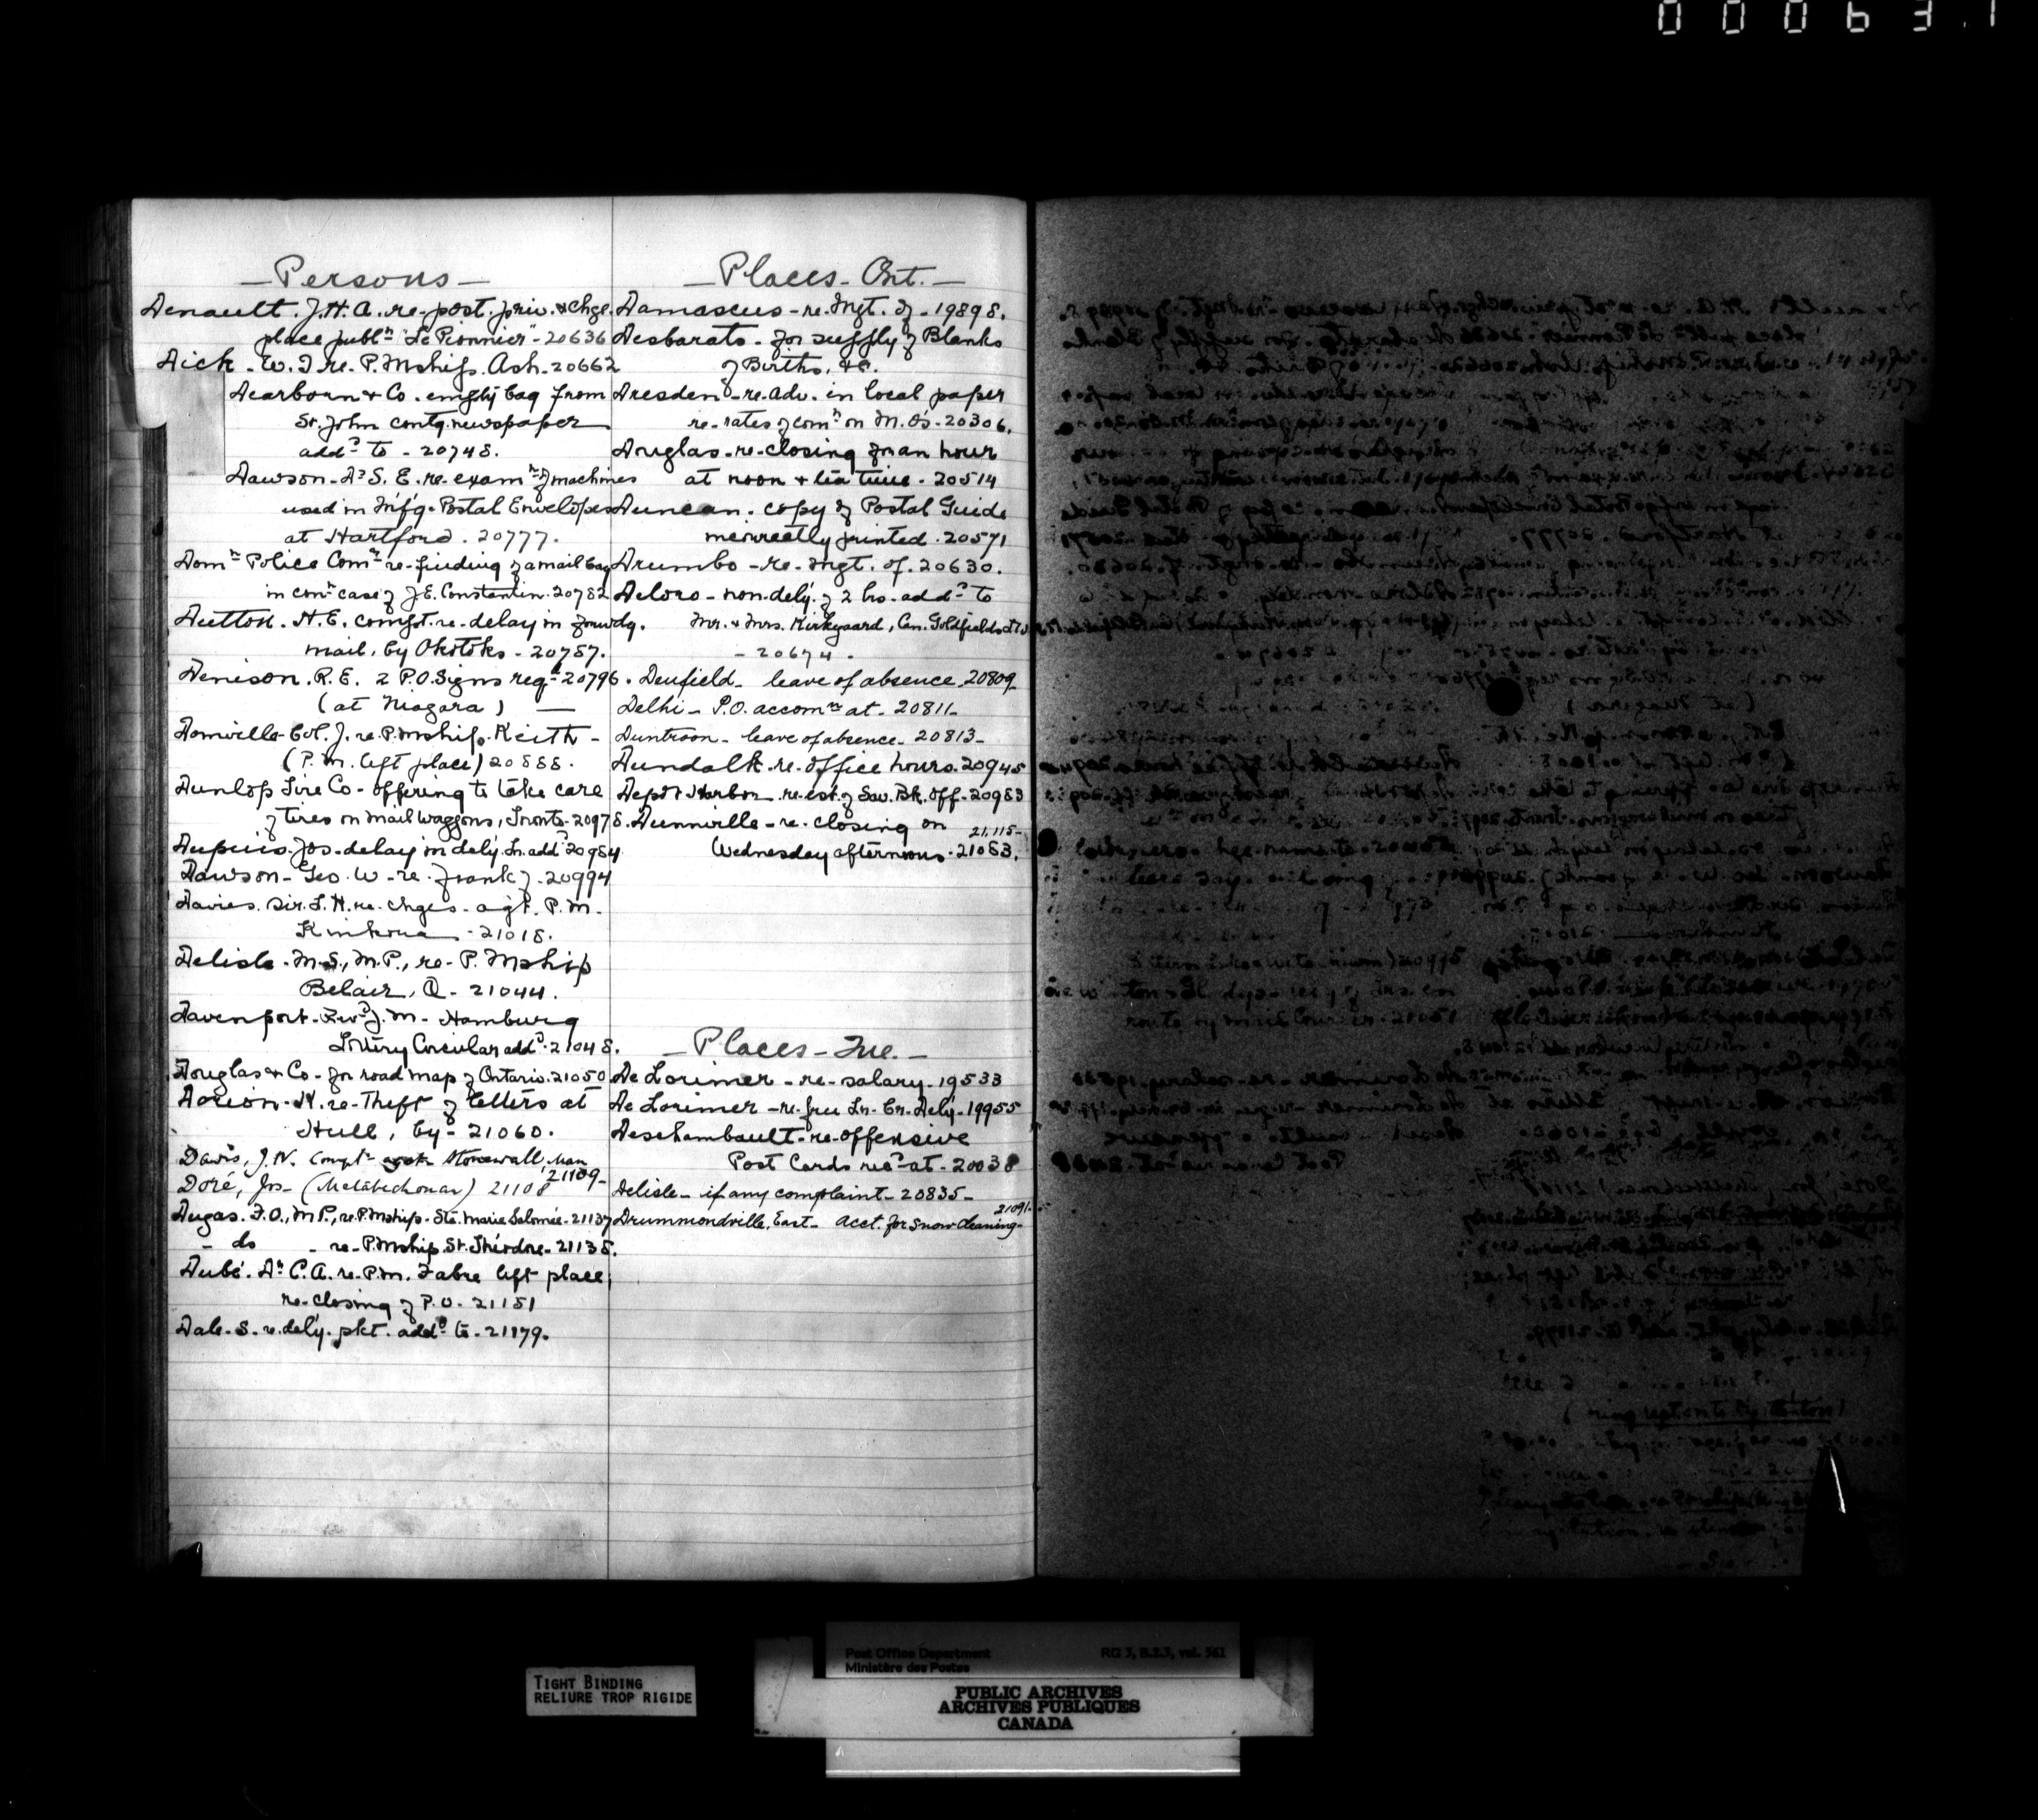 000631
— Persons —
Denault. J. H. A. re. post. priv. & chge.
place publn "Le Pionnier" - 20636
Dick - W. J. re. P. Mship. Ash. 20662
Dearborn & Co. empty bag from
St. John contg. newspaper
addd to - 20748.
Dawson - Dr S. E. re. examn of machines
used in m'f'g. Postal Envelopes
at Hartford. 20777.
Domn Police Comr re-finding of a mail bag
in conn case of J. E. Constantin. 20782
Dutton. H. E. compt. re-delay in forwdg.
mail, by Okotoks - 20787.
Denison. R. E. 2 P.O. Signs reqd 20796.
(at Niagara) —
Domville Col. J. re. P. mship. Keith -
(P. m. left place) 20888.
Dunlop Tire Co - offering to take care
of tires on mail waggons, Toronto - 20978.
Dupuis. Jos. delay in dely. Lr. addd 20984
Dawson - Geo. W - re. frank of - 20994
Davies. Sir. L. H. re. chges - agt. P. M.
Kinkora - 21018.
Delisle. M. S., M.P., re- P. Mship
Belair, Q - 21044.
Davenport - Revd J. M - Hamburg
Lottery Circular addd - 21048.
Douglas & Co - for road map of Ontario. 21050
Dorion - H. re-Theft of letters at
Hull, by - 21060.
Davis, J. N. Compt Stonewall, Man
21109-
Doré, Jos - (Metabetchouan) 21108
Dugas. F. O., M.P., re. P. Mship. Ste. Marie Salomée - 21137
- do - re- P. Mship. St. Théodore - 21138.
Dubé. Dr C. A. re. P. m. Fabre left place,
re-closing of P. O - 21151
Dale. S. re. dely. pkt. addd to - 21179.
— Places - Ont. —
Damascus - re. mgt. of - 19898.
Desbarats - for supply of Blanks
of Births, &c.
Dresden - re. adv. in local paper
re - rates of comn on M. O's - 20306.
Douglas - re-closing for an hour
at noon & tea time - 20514
Duncan. copy of Postal Guide
incorrectly printed. 20571
Drumbo - re - mgt. of. 20630.
Deloro - non-dely. of 2 lrs. addd to
Mr. & Mrs. Kirkgaard, Can. Goldfields Ltd
- 20674.
Denfield - leave of absence 20809
Delhi - P.O. accomn at - 20811-
Duntroon - leave of absence - 20813-
Dundalk re. office hours. 20945
Depot Harbor re-est. of Sav. Bk. off - 20983
Dunnville - re - closing on
21,115-
Wednesday afternoons. 21083.
— Places - Que. —
De Lorimer - re - salary - 19533
De Lorimer - re. free Lr. Cr. Dely - 19955
Deschambault - re-offensive
Post Cards recd at - 20038
Delisle - if any complaint - 20835-
21091-
Drummondville, East - acct. for snow cleaning-
TIGHT BINDING
RELIURE TROP RIGIDE
Post Office Department RG 3, B.2.3, vol. 561
Ministère des Postes
PUBLIC ARCHIVES
ARCHIVES PUBLIQUES
CANADA